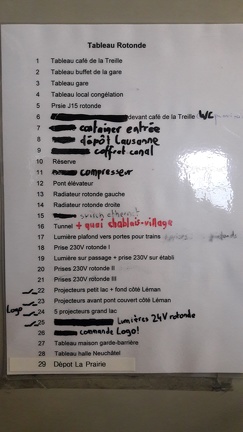 Tableau Rotonde
1 Tableau café de la Treille
2 Tableau buffet de la gare
3 Tableau gare
4 Tableau local congélation
5 Prsie J15 rotonde
6 devant café de la Treille WC
7 container entrée
8 dépôt Lausanne
9 coffret canal
10 Réserve
11 compresseur
12 Pont élévateur
13 Radiateur rotonde gauche
14 Radiateur rotonde droite
15 switch ethernet
16 Tunnel + quai chablais-village
17 Lumière plafond vers portes pour trains
18 Prise 230V rotonde I
19 Lumière sur passage + prise 230V sur établi
20 Prises 230V rotonde II
21 Prises 230V rotonde III
22 Projecteurs petit lac + fond côté Léman
23 Projecteurs avant pont couvert côté Léman
Logo 24 5 projecteurs grand lac
25 Lumières 24V rotonde
26 commande Logo!
27 Tableau maison garde-barrière
28 Tableau halle Neuchâtel
29 Dépot La Prairie